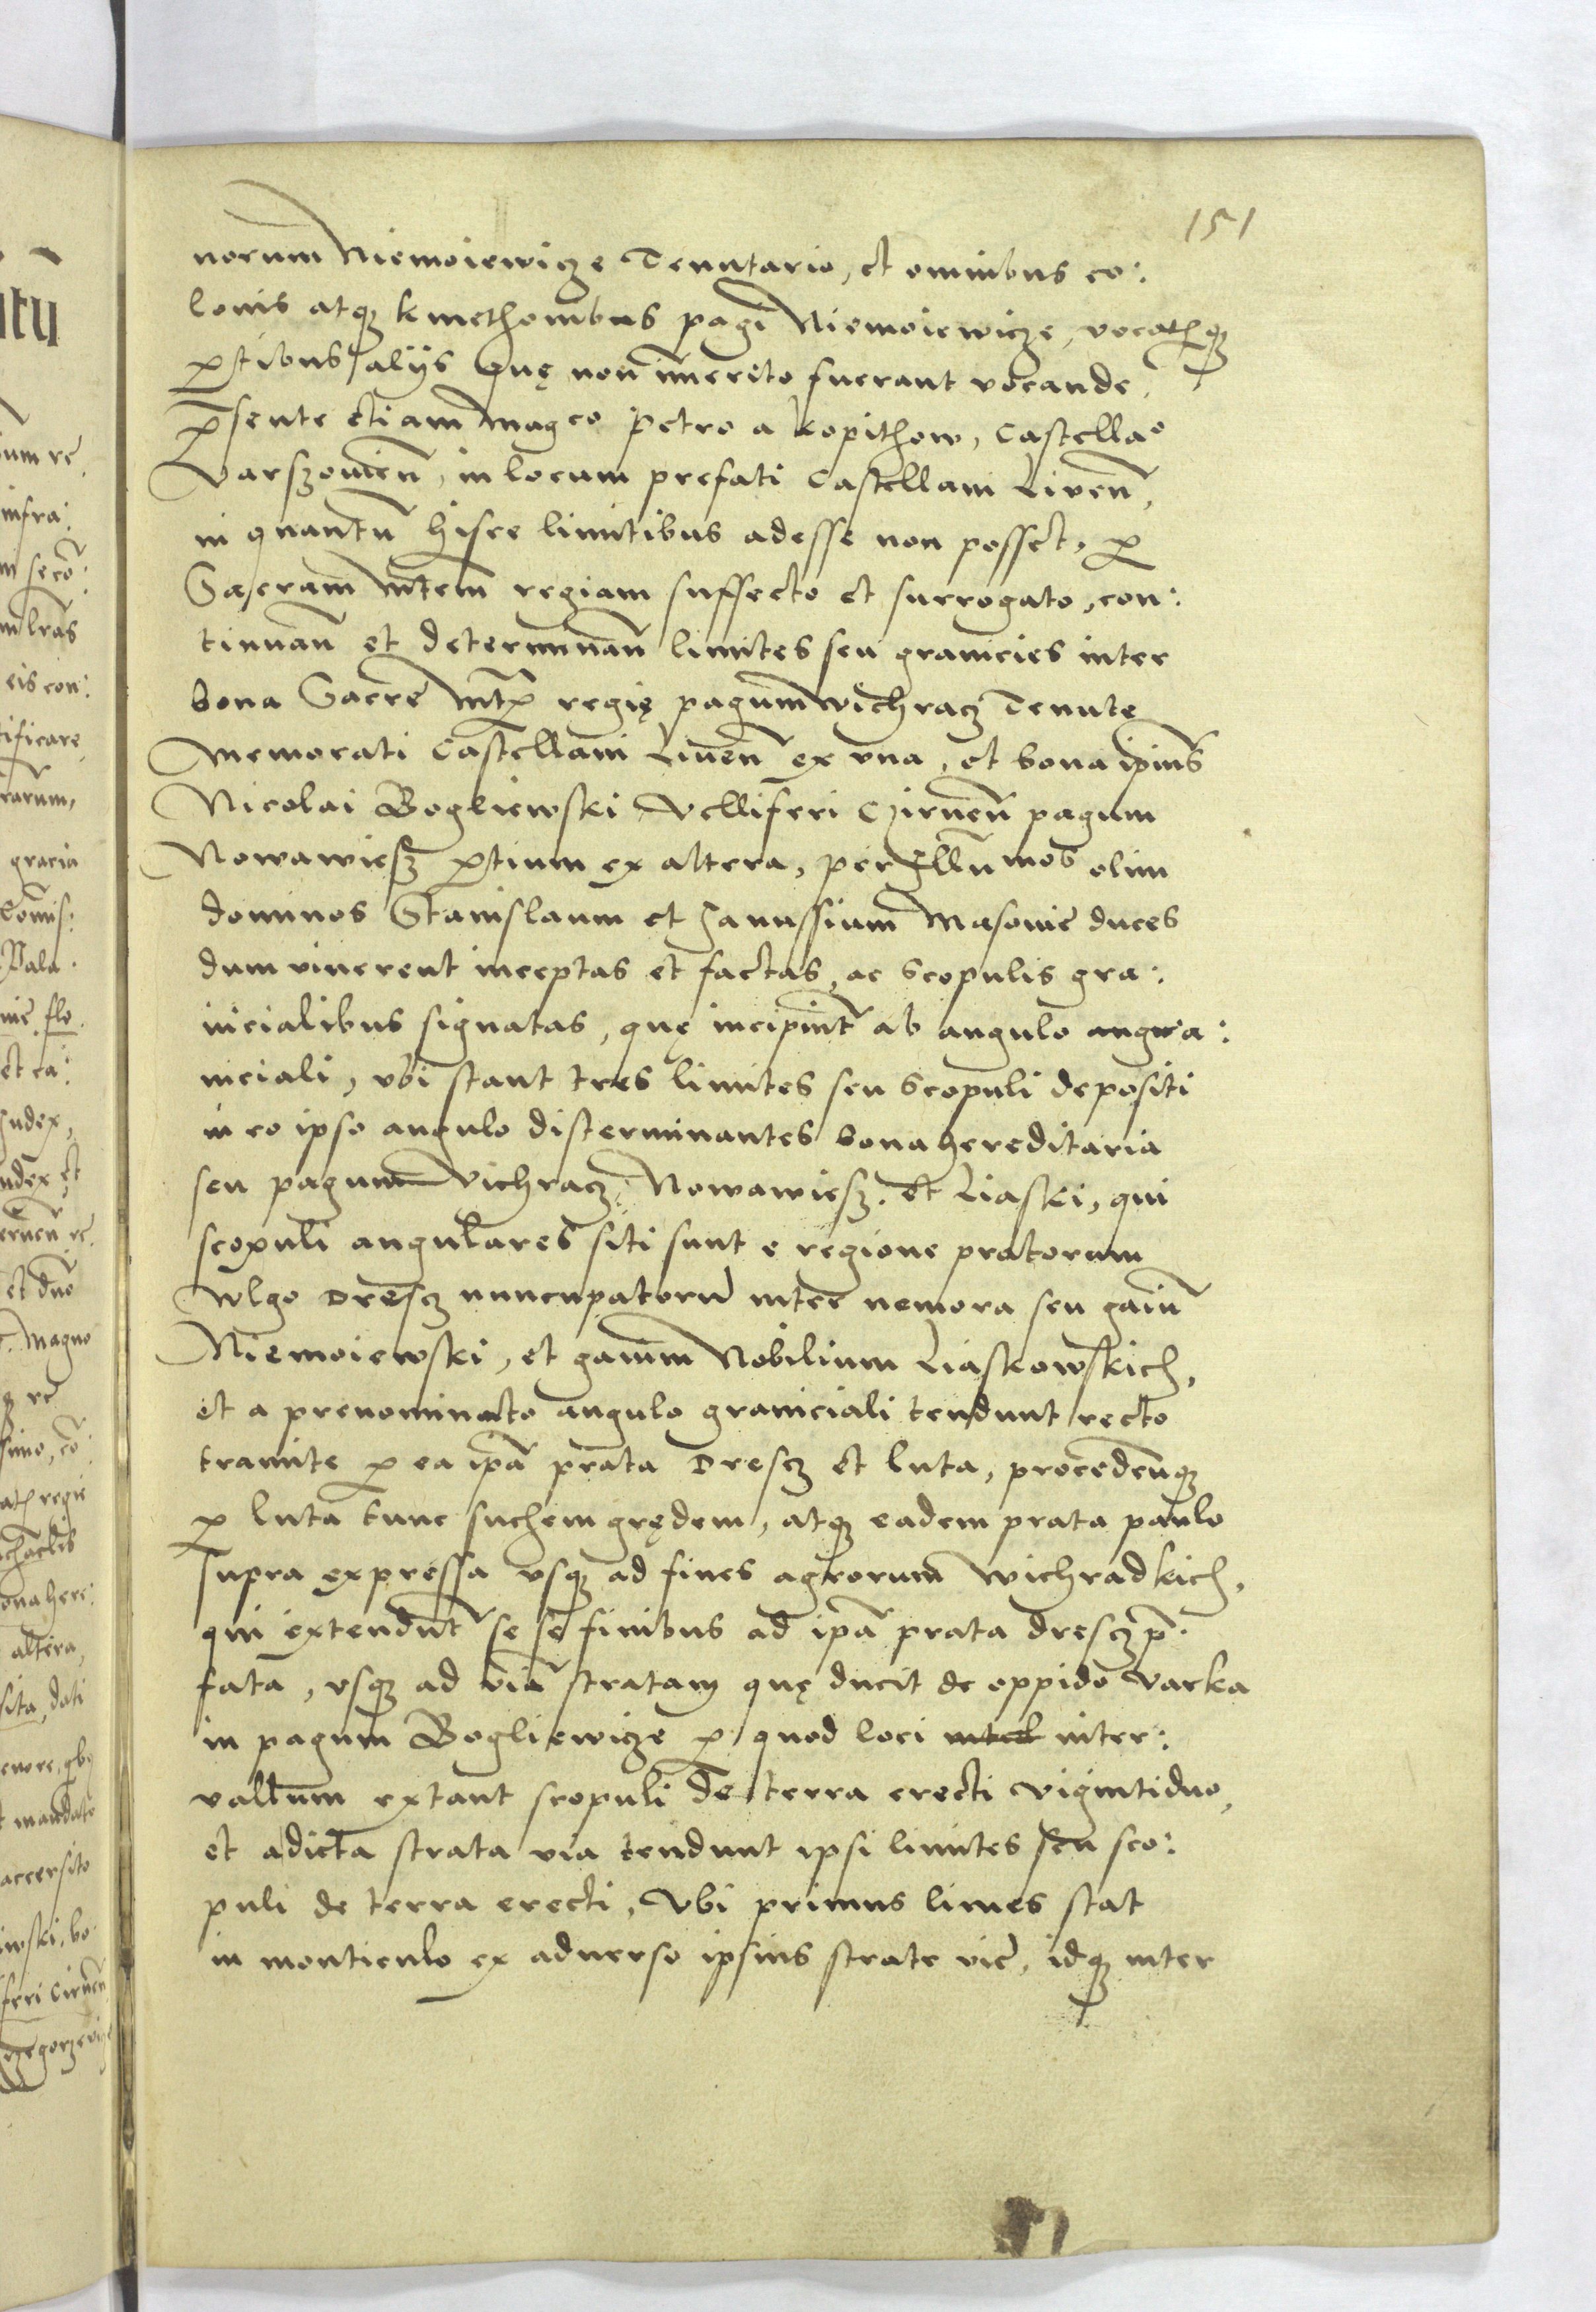 151
norum Niemoiewicze Tenutario, et omnibus co:
lonis atqꝫ kmethonibus pagi Niemoiewicze, vocatisqꝫ
ꝑtibus alijs quę non im̄erito fuerant vocande,
p̄sente etiam Magco Petro a Kopithow, Castellaº
Varszouien̄, in locum prefati Castellani Liven̄,
in quantū hisce limitibus adesse non posset, ꝑ
Sacram Mtem̄ regiam suffecto et surrogato, con:
tinuan̄ et determinan̄ limites seu granicies inter
bona Sacre Mtꝭ regię pagum Wichracz Tenute
memorati Castellani Liuen̄ ex vna, et bona ipius̄
Nicolai Bogliewski Velliferi Czirnen̄ pagum
Nowawiesz ꝑtium ex altera, per Illūmos olim
dominos Stanislaum et Janussium Masouie duces
dum viuerent inceptas et factas, ac scopulis gra:
nicialibus signatas, quę incipiunt̄ ab angulo angra:
niciali, vbi stant tres limites seu scopuli depositi
in eo ipso angulo disterminantes bona hereditaria
seu pagum Vichracz, Nowawiesz. et Liaski, qui
scopuli angulares siti sunt e regione pratorum
wlgo Drescz nuncupatorū inter nemora seu gaiū
Niemoiewski, et gaium Nobilium Liaskowskich,
et a prenominato angulo graniciali tendunt recto
tramite ꝑ ea ipā prata Drescz et luta, procedendoqꝫ
ꝑ luta tunc suchem grędem, atqꝫ eadem prata paulo
supra expressa vsqꝫ ad fines agrorum Wichradkich,
qui extendunt̄ se se finibus ad ipā prata dresczp̄:
fata, vsqꝫ ad viā stratam quę ducit de oppido Varka
in pagum Bogliewicze ꝑ quod loci inter:
vallum extant scopuli de terra erecti vigintiduo,
et a dicta strata via tendunt ipsi limites seu sco:
puli de terra erecti, Vbi primus limes stat
in monticulo ex aduerso ipsius strate vie, idqꝫ inter